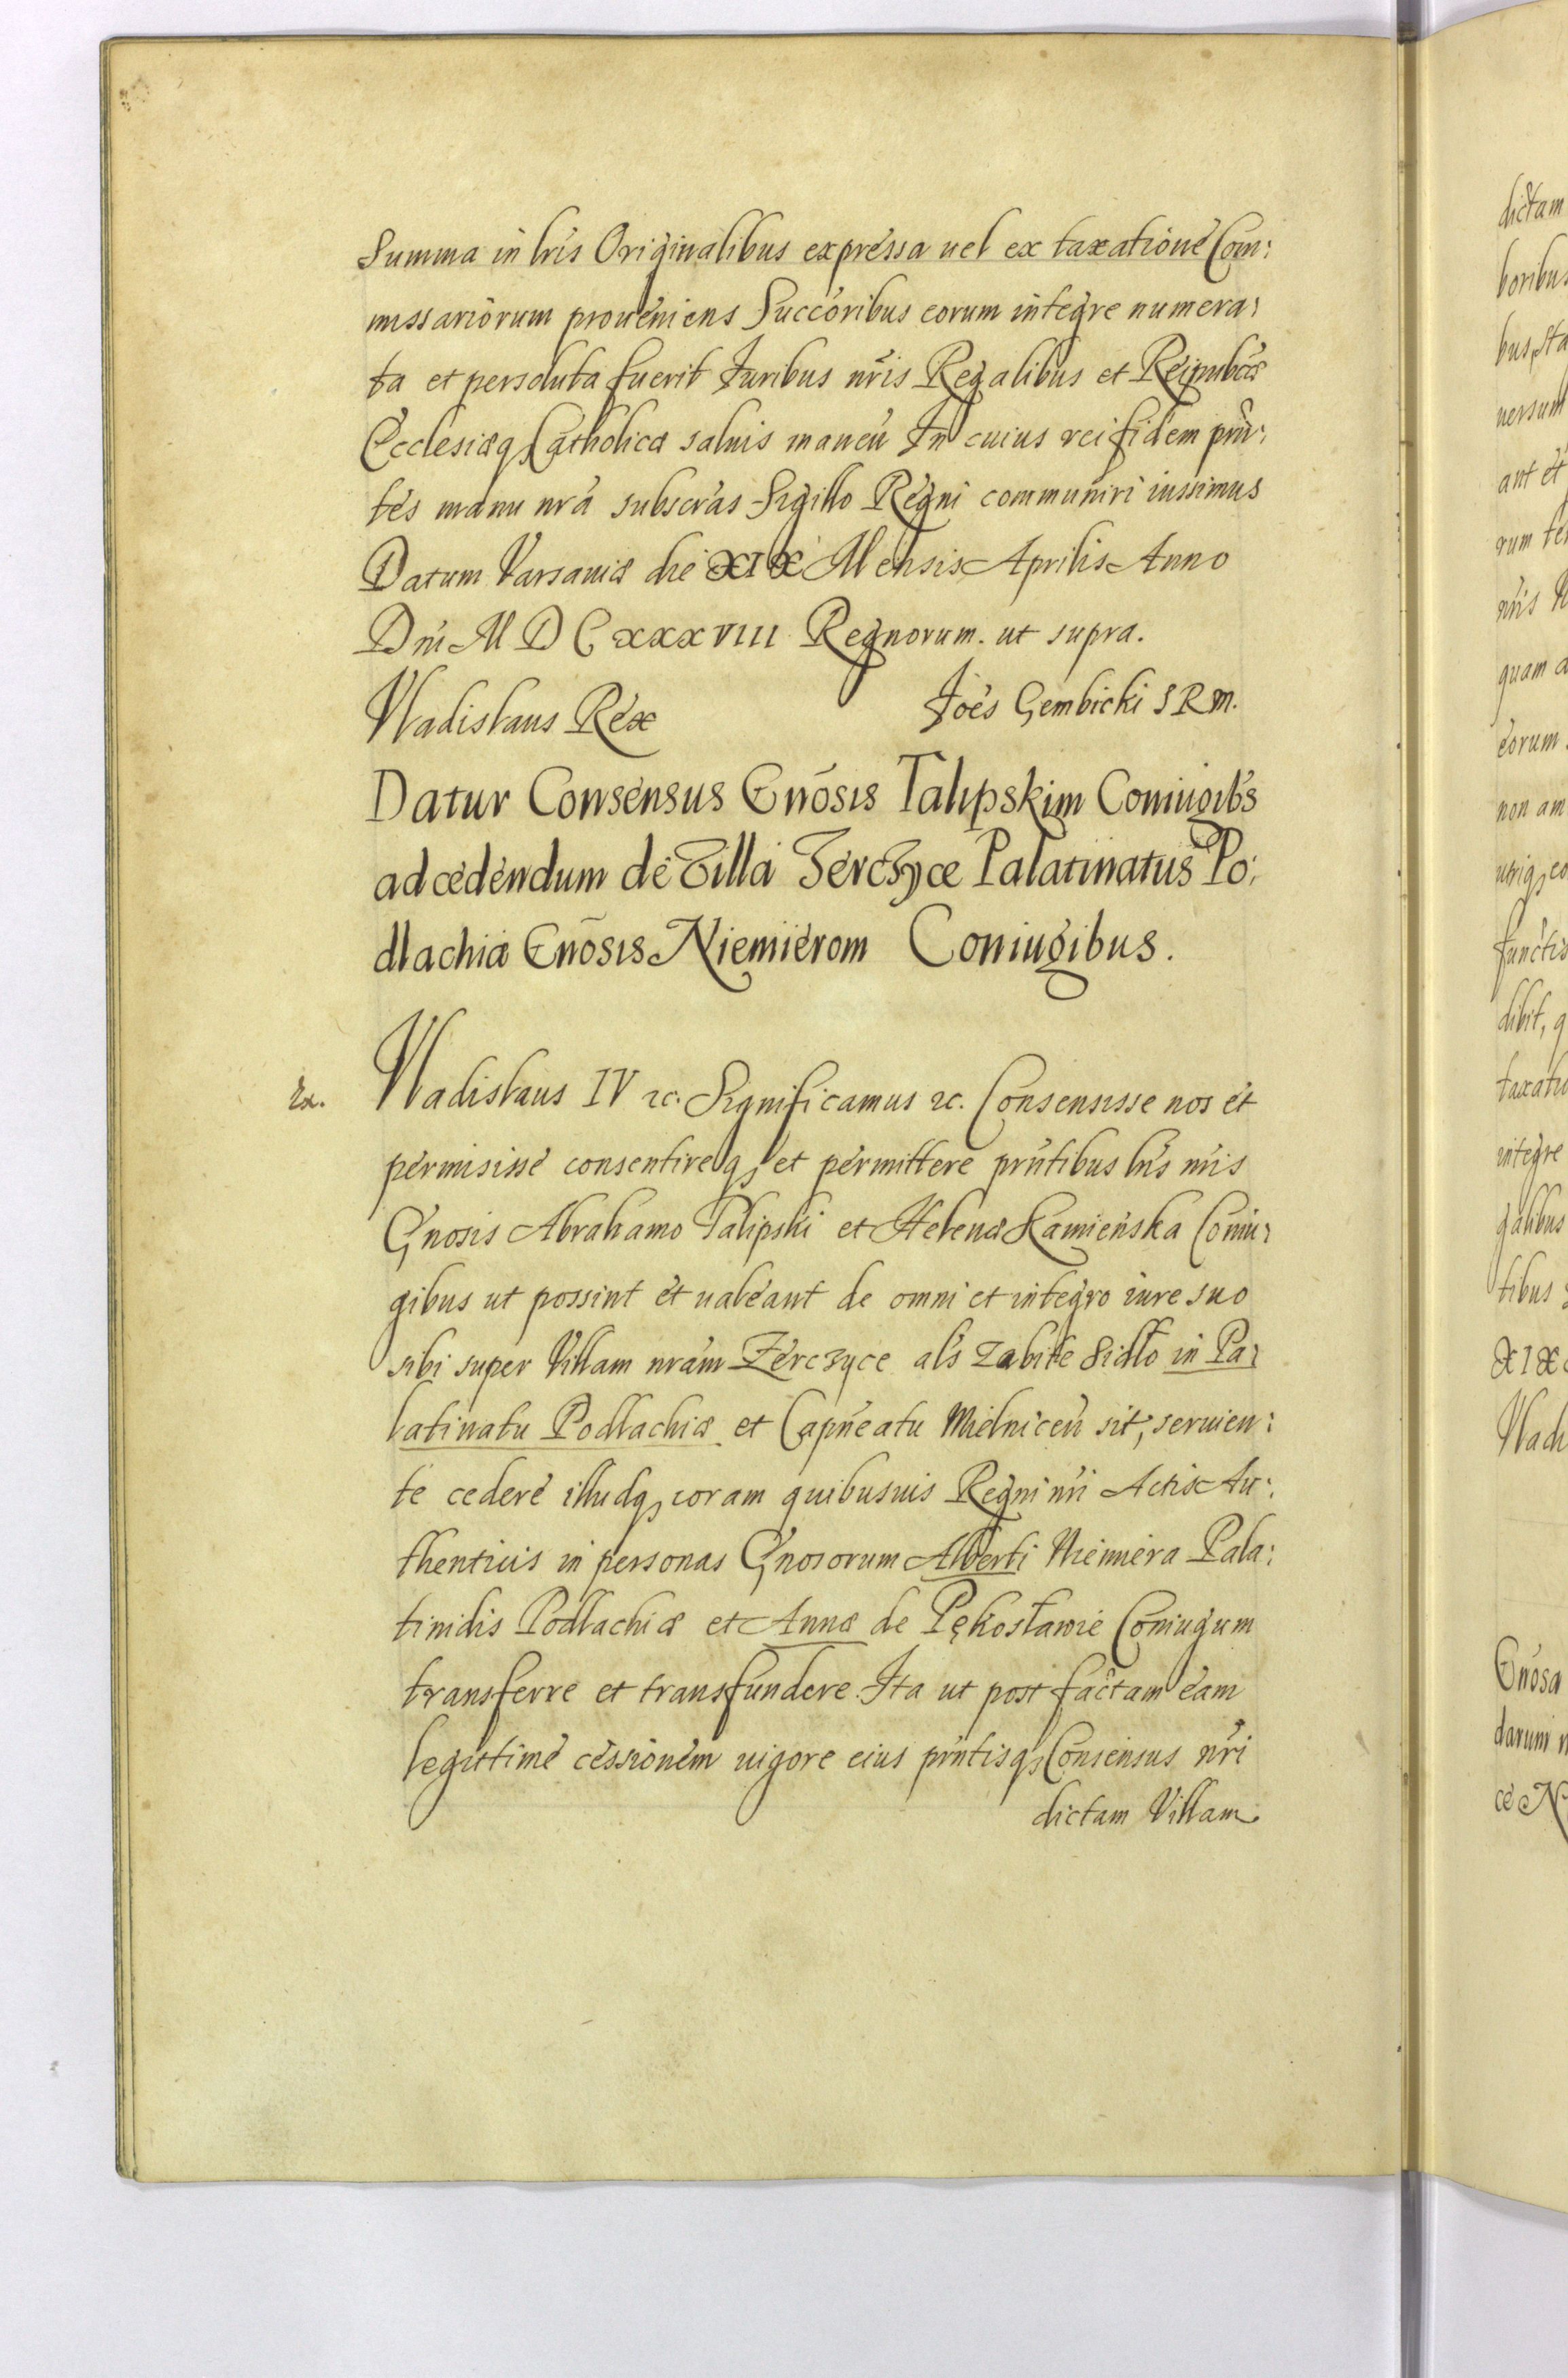 Summa in lris Originalibus expressa uel ex taxatione Com:
missariorum proueniens Succoribus eorum integre numera:
ta et persoluta fuerit Juribus nris Regalibus et Reipubcæ
Ecclesiæq Catholicæ saluis maneñ In cuius rei fidem pñn:
tes manu nra subscras Sigillo Regni communiri iussimus
Datum Varsauiæ die XIX Mensis Aprilis Anno
Dni M D C XXXVIII Regnorum. ut supra.
Vladislaus Rex
Joes Gembicki S R M.
Datur Consensus Gnosis Talipskim Coniugibs
ad cedendum de Villa Zerczyce Palatinatus Po:
dlachiæ Gnosis Niemierom Coniugibus.
Ex.
Vladislaus IV rc. Significamus rc. Consensisse nos et
permisisse consentireq et permittere prntibus lris nris
Gnosis Abrahamo Talipski et Helenæ Kamieńska Coniu:
gibus ut possint et ualeant de omni et integro iure suo
sibi super Villam nram Zerczyce als Zabite Sidło in Pa:
latinatu Podlachiæ et Capneatu Mielniceñ sit, seruien:
te cedere illudq coram quibusuis Regni nri Actis Au:
thenticis in personas Gnosorum Alberti Niemiera Pala:
tinidis Podlachiæ et Annæ de Pękosławie Coniugum
transferre et transfundere. Ita ut post factam eam
legittime cessionem uigore eius prntisq Consensus nri
dictam Villam
dictam
XIX
Gnosa